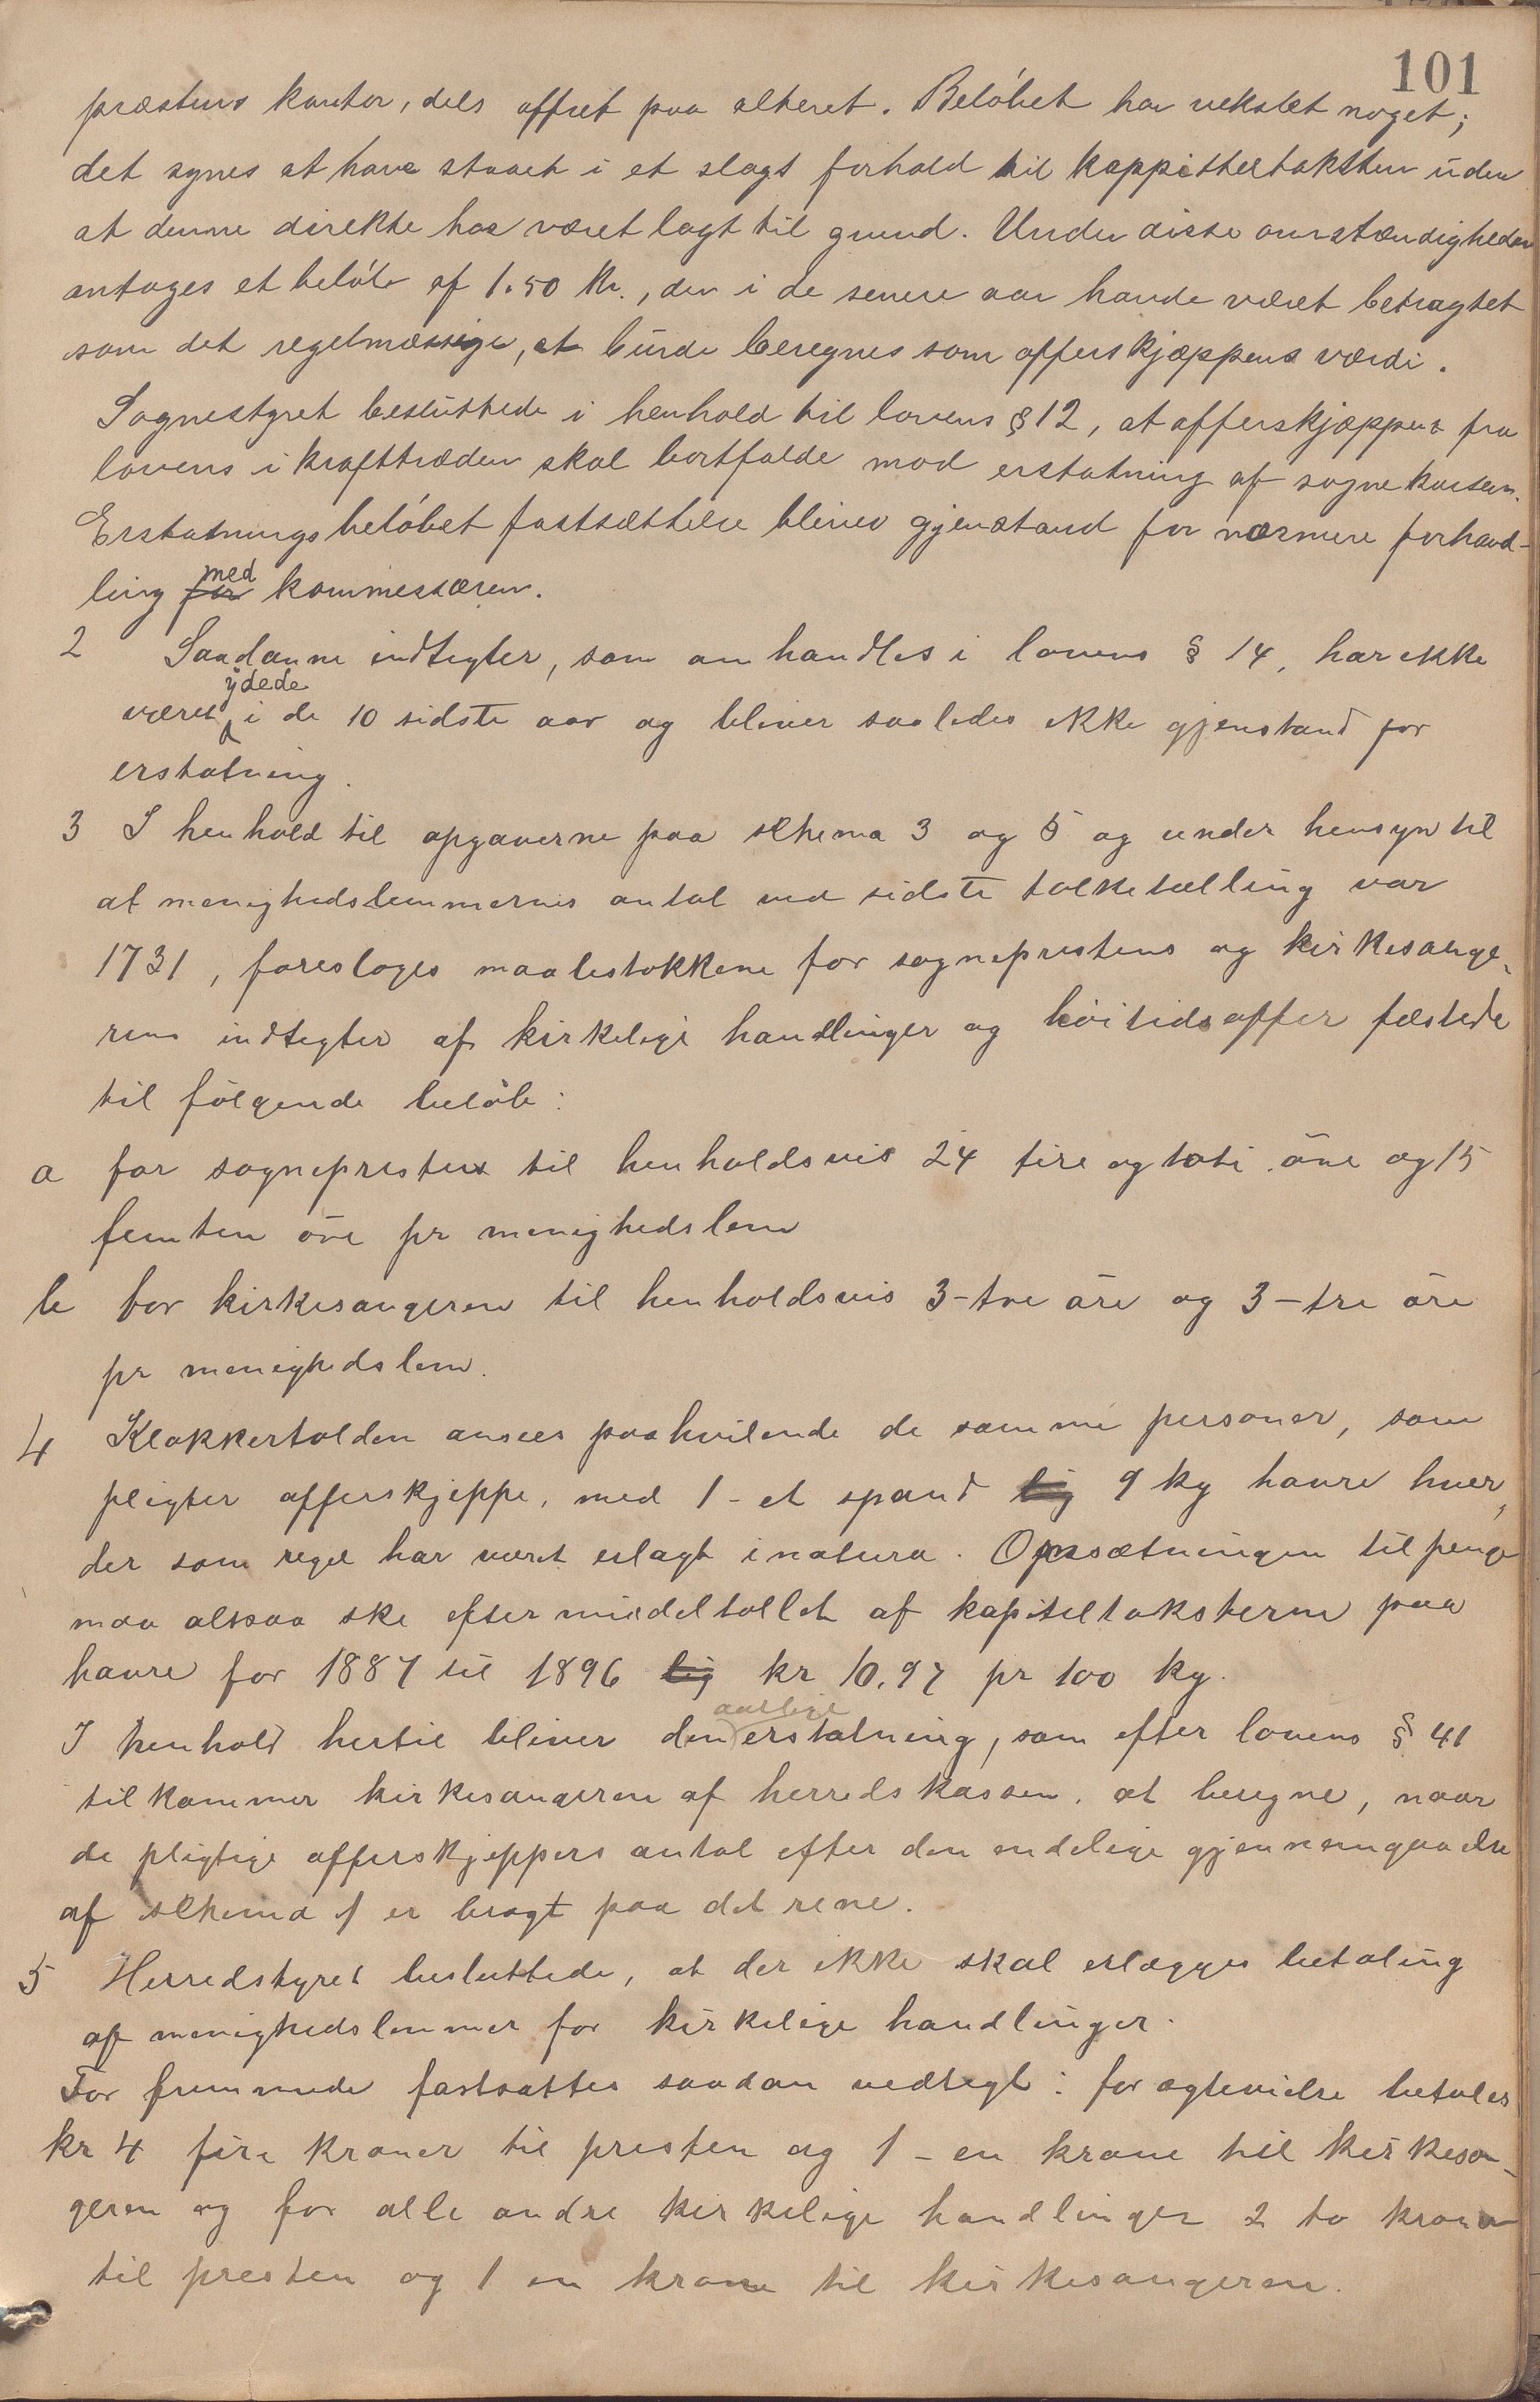 101
præstens kontor, dels offret paa alteret. Beløbet har vekslet noget;
det synes at have staaet i et slags forhold til kappitteltaksten uden
at denne direkte har været lagt til grund. Under disse omstændigheder
antages et beløb af 1.50 Kr., der i de senere aar havde været betragtet
som det regelmæssige, at burde beregnes som offerskjæppens værdi.
Sognestyret besluttede i henhold til lovens § 12, at offerskjæppen fra
lovens i krafttræden skal bortfalde mod erstatning af sognekassen.
Erstatningsbeløbet fastsættelse bliver gjenstand for nærmere forhand-
ling for med kommissæren.
2 Saadanne indtegter, som omhandles i lovens § 14, har ikke
været ydede i de 10 sidste aar og bliver saaledes ikke gjenstand for
erstatning.
3 I henhold til opgaverne paa schema 3 og 5 og under hensyn til
at menighedslemmernes antal ved sidste folketælling var
1731, foresloges maalestokkene for sogneprestens og kirkesange-
rens indtegter af kirkelige handlinger og høitidsoffer festede
til følgende beløb:
a for sognepresten til henholdsvis 24 fire og toti øre og 15
femten øre pr menighedslem
b for kirkesangeren til henholdsvis 3-tre øre og 3-tre øre
pr menighedslem.
4 Klokkertolden ansees paahvilende de samme personer, som
pligter offerskjeppe, med 1 - et spand lig 9 kg havre hver,
der som regel har været erlagt i natura. Omsætningen til penge
maa altsaa ske efter middeltallet af kapiteltaksterne paa
havre for 1887 til 1896 lig kr 10.97 pr 100 kg.
I henhold hertil bliver den aarlige erstatning, som efter lovens § 41
tilkommer kirkesangeren af herredskassen, at beregne, naar
de pligtige offerskjeppers antal efter den endelige gjennemgaaelse
af schema 1 er bragt paa det rene.
5 Herredstyret besluttede, at der ikke skal erlægges betaling
af menighedslemmer for kirkelige handlinger.
For fremmede fastsattes saadan vedtegt: for egtevielse betales
kr 4 fire kroner til presten og 1 - en krone til kirkesan-
geren og for alle andre kirkelige handlinger 2 to kroner
til presten og 1 en krone til kirkesangeren.